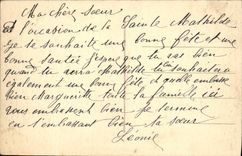 Ma chère Sœur
A l'occasion de la Sainte Mathilde
je te souhaite une bonne fête et une
bonne santé J'espère que tu vas bien
quand tu verra Mathilde tu souhaitera
également une bonne fête et qu'elle embrasse
bien Marguerite toute la famille ici
vous embrassent bien je termine
en t'embrassant bien ta sœur
Léonie